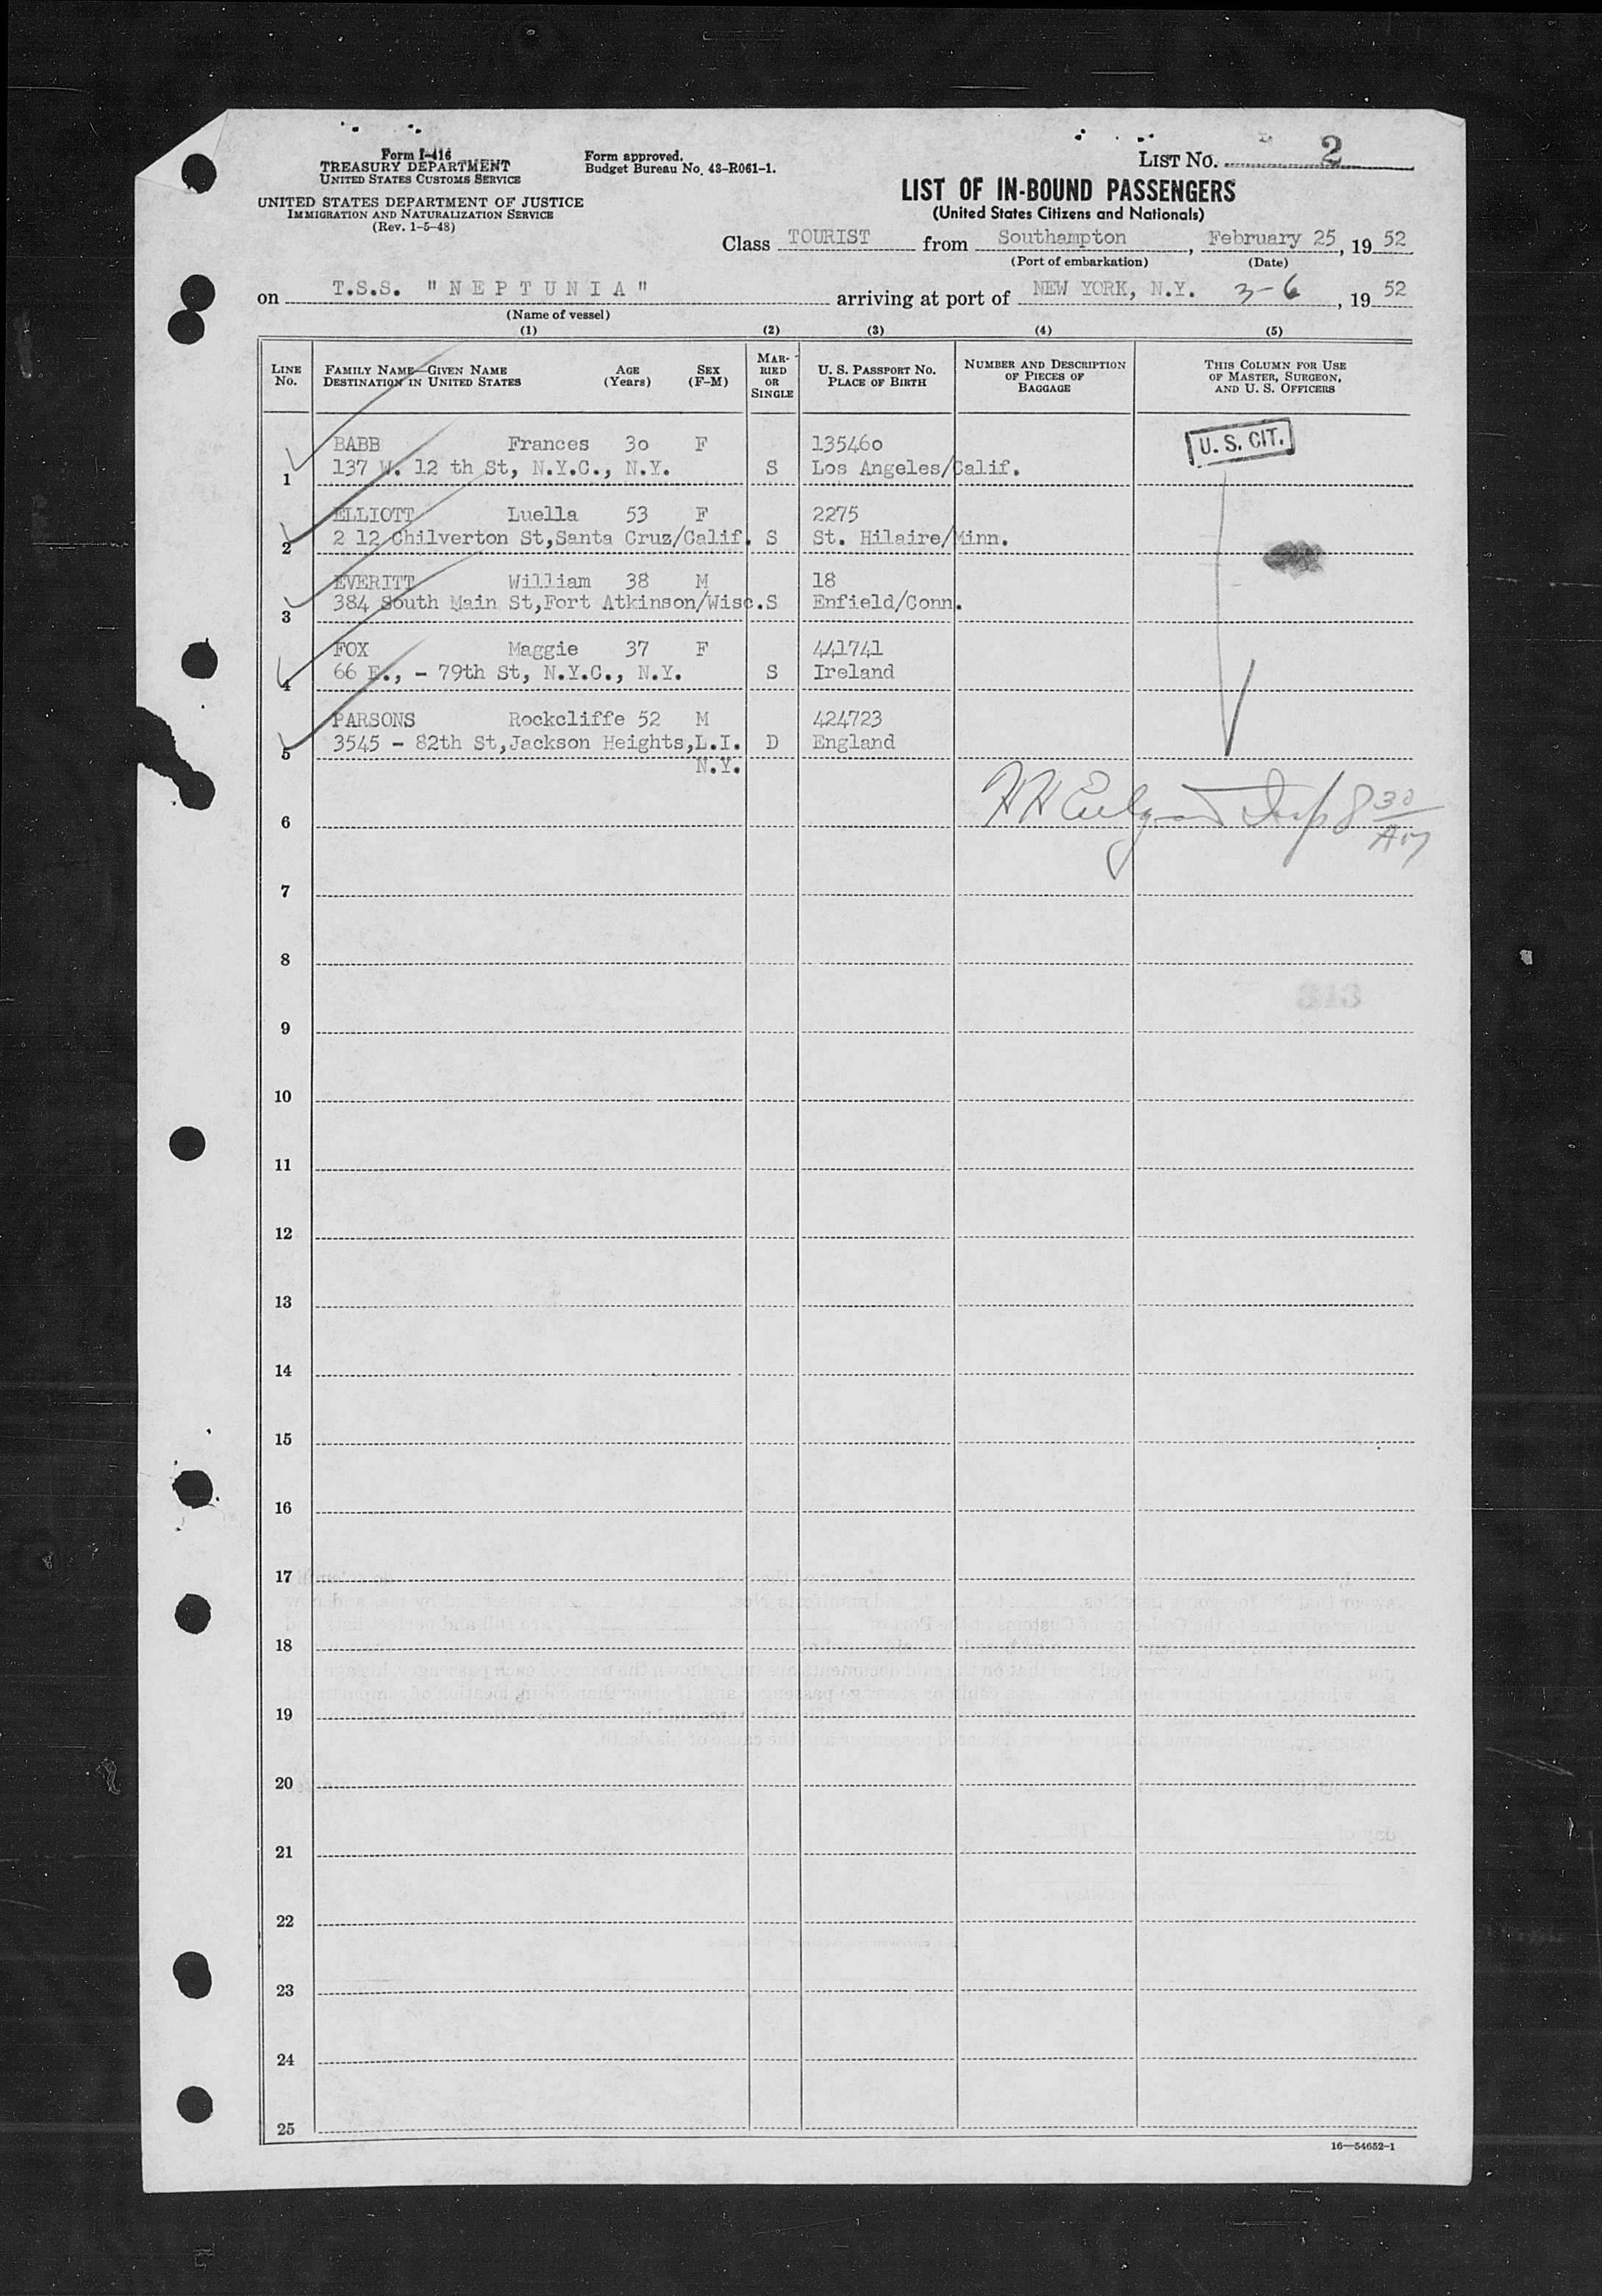 Form I-416
TREASURY DEPARTMENT
UNITED STATES CUSTOMS SERVICE
UNITED STATES DEPARTMENT OF JUSTICE
IMMIGRATION AND NATURALIZATION SERVICE
(Rev. 1-5-48)
Form approved.
Budget Bureau No. 43-R061-1.
LIST NO. 2
LIST OF IN-BOUND PASSENGERS
(United States Citizens and Nationals)
Class TOURIST from Southampton, February 25, 19 52
(Port of embarkation) (Date)
on T.S.S. "NEPTUNIA" arriving at port of NEW YORK, N.Y. 3-6, 19 52
(Name of vessel)
(1) (2) (3) (4) (5)
LINE No. FAMILY NAME—GIVEN NAME DESTINATION IN UNITED STATES AGE (Years) SEX (F-M) MARRIED OR SINGLE U. S. PASSPORT NO. PLACE OF BIRTH NUMBER AND DESCRIPTION OF PIECES OF BAGGAGE THIS COLUMN FOR USE OF MASTER, SURGEON, AND U. S. OFFICERS
BABB Frances 30 F 135460 U. S. CIT.
1 137 W. 12 th St, N.Y.C., N.Y. S Los Angeles/Calif.
ELLIOTT Luella 53 F 2275
2 2 12 Chilverton St,Santa Cruz/Calif. S St. Hilaire/Minn.
EVERITT William 38 M 18
3 384 South Main St,Fort Atkinson/Wisc. S Enfield/Conn.
FOX Maggie 37 F 441741
4 66 E., - 79th St, N.Y.C., N.Y. S Ireland
PARSONS Rockcliffe 52 M 424723
5 3545 - 82th St,Jackson Heights,L.I. D England
N.Y.
6 Insp 8 30 AM
7
8
9
10
11
12
13
14
15
16
17
18
19
20
21
22
23
24
25
16—54652-1